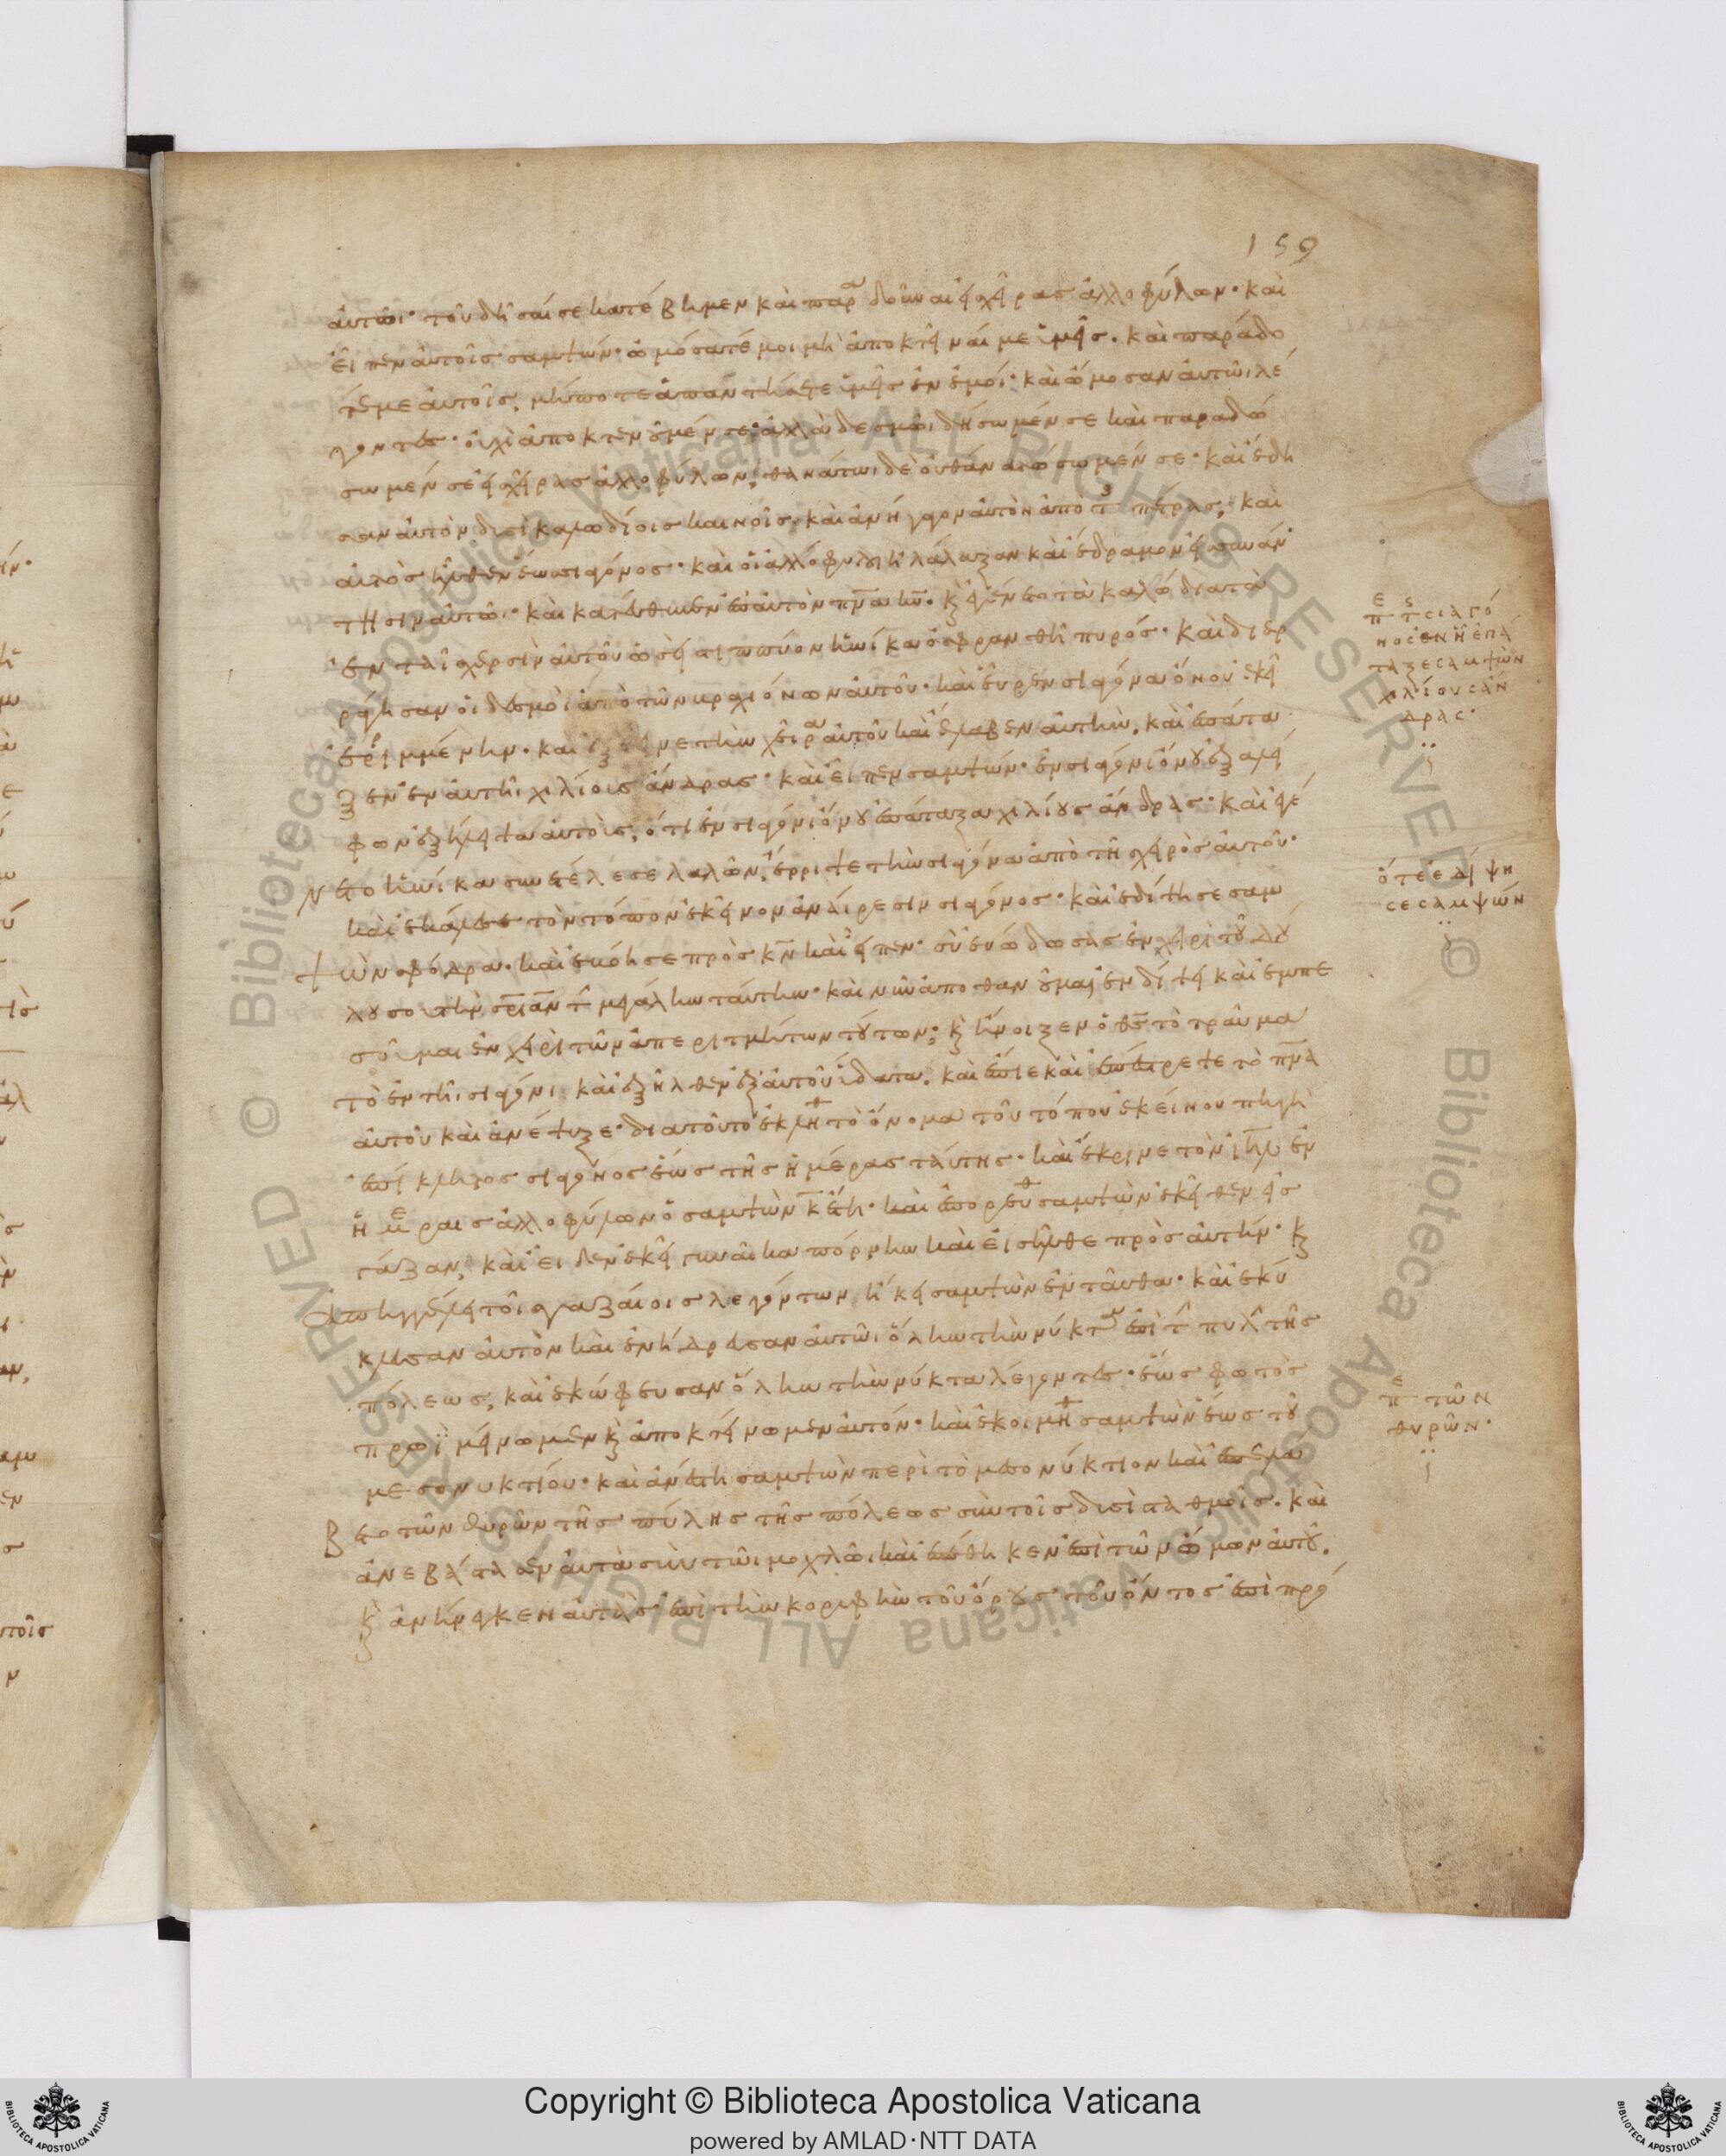 159
ἀυτῶι· τοῦ δῆσαί σε κατέβημεν καὶ παρ δοῦναι εἰς χεῖρας ἀλλοφύλων· καὶ
εἶπεν ἀυτοῖς σαμψών· ὀμόσατέ μοι μὴ ἀποκτεῖναί με ὑμεῖς· καὶ παράδο
τέ με ἀυτοῖς, μήποτε ἀπαντήσητε ὑμεῖς ἐν ἐμοί· καὶ ὤμοσαν ἀυτῶι λέ
γοντες· οὐχὶ ἀποκτενοῦμέν σε· ἀλλὰ δεσμῶι δήσωμέν σε καὶ παραδώ
σωμέν σε εἰς χεῖρας ἀλλοφύλων· θανάτωι δὲ οὐ θανατώσωμέν σε· καὶ ἔδη
σαν ἀυτὸν δυσὶ καλωδίοις καινοῖς· καὶ ἀνήγαγον ἀυτὸν ἀπὸ τ πέτρας· καὶ
ἀυτὸς ἦλθεν ἕως σιαγόνος· καὶ οἱ ἀλλόφυλοι ἠλάλαξαν καὶ ἔδραμον εἰς συνάν
τησιν ἀυτῶ· καὶ κατεύθυνεν ἐπ ἀυτὸν πνα κυ· κ ἐγένετο τὰ καλώδια τὰ
ἐν ταῖς χερσὶν ἀυτοῦ ὡσεὶ στιππύον ἡνίκα ὀσφρανθῆ πυρός· καὶ διερ
ράγησαν οἱ δεσμοὶ ἀπὸ τῶν βραχιόνων ἀυτοῦ· καὶ εὗρεν σιαγόνα ὄνου ἐκεῖ
ἐρριμμένην· καὶ ἐξέτεινε τὴν χεῖρα ἀυτοῦ καὶ ἔλαβεν ἀυτὴν, καὶ ἐπάτα
ξεν ἐν ἀυτῆι χιλίους ἄνδρας· καὶ εἶπεν σαμψών· ἐν σιαγόνι ὄνου ἐξαλεί
φων ἐξήλειψα ἀυτοὺς, ὅτι ἐν σιαγόνι ὄνου ἐπάταξα χιλίους ἄνδρας· καὶ ἐγέ
νετο ἡνίκα συνετέλεσε λαλῶν, ἔρριψε τὴν σιαγόνα ἀπὸ τῆς χειρὸς ἀυτοῦ·
καὶ ἐκάλεσε τὸν τόπον ἐκεῖνον ἀναίρεσιν σιαγόνος· καὶ ἐδίψησε σαμ
ψὼν σφόδρα· καὶ ἐβόησε πρὸς κν καὶ εἶπεν· σὺ ἐυώδωσας ἐν χειρὶ τοῦ δού
λου σου τὴν σριαν τ μεγάλην ταύτην· καὶ νῦν ἀποθανοῦμαι ἐν δίψει καὶ ἐμπε
σοῦμαι ἐν χειρὶ τῶν ἀπεριτμήτων τούτων· κ ἤνοιξεν ὁ θς τὸ τραῦμα
τὸ ἐν τῆι σιαγόνι· καὶ ἐξῆλθεν ἐξ ἀυτοῦ ὕδατα· καὶ ἔπιε καὶ ἐπέστρεψε τὸ πνα
ἀυτοῦ καὶ ἀνέψυξε· διατοῦτο ἐκλήθ τὸ ὄνομα τοῦ τόπου ἐκείνου πηγὴ
ἐπίκλητος σιαγόνος ἕως τῆς ἡμέρας ταύτης· καὶ ἔκρινε τὸν ιηλ ἐν
ἡμέραις ἀλλοφύλων ὁ σαμψὼν κ ἔτη· καὶ ἐπορεύθ σαμψὼν ἐκεῖθεν εἰς
γάζαν, καὶ εἶδεν ἐκεῖ γυναῖκα πόρνην καὶ εἰσῆλθε πρὸς ἀυτήν· κ
ἀπηγγέλη τοῖς γαζαίοις λεγόντων, ἥκει σαμψὼν ἐνταῦθα· καὶ ἐκύ
κλωσαν ἀυτὸν καὶ ἐνήδρευσαν ἀυτῶι ὅλην τὴν νύκτα ἐπὶ τ πύλ τῆς
πόλεως, καὶ ἐκώφευσαν ὅλην τὴν νύκτα λέγοντες· ἕως φωτὸς
πρωῒ μείνωμεν κ ἀποκτείνωμεν ἀυτόν· καὶ ἐκοιμήθ σαμψὼν ἕως τοῦ
μεσονυκτίου· καὶ ἀνέστη σαμψὼν περὶ τὸ μεσονύκτιον καὶ ἐπελά
βετο τῶν θυρῶν τῆς πύλης τῆς πόλεως σὺν τοῖς δυσὶ σταθμοῖς· καὶ
ἀνεβάστασεν ἀυτὰ σὺν τῶι μοχλῶι καὶ ἐπέθηκεν ἐπὶ τῶ νώμων ἀυτοῦ·
κ ἀνήνεγκεν ἀυτὰς ἐπὶ τὴν κορυφὴν τοῦ ὄρους τοῦ ὄντος ἐπὶ πρό
πε τς σιαγό
νος ἐν ἧ ἐπά
ταξε σαμψὼν
χιλίους ἄν
δρας·
ὅτε ἐδίψη
σε σαμψών
πε τῶν
θυρῶν·
Copyright © Biblioteca Apostolica Vaticana
powered by AMLAD·NTT DATA